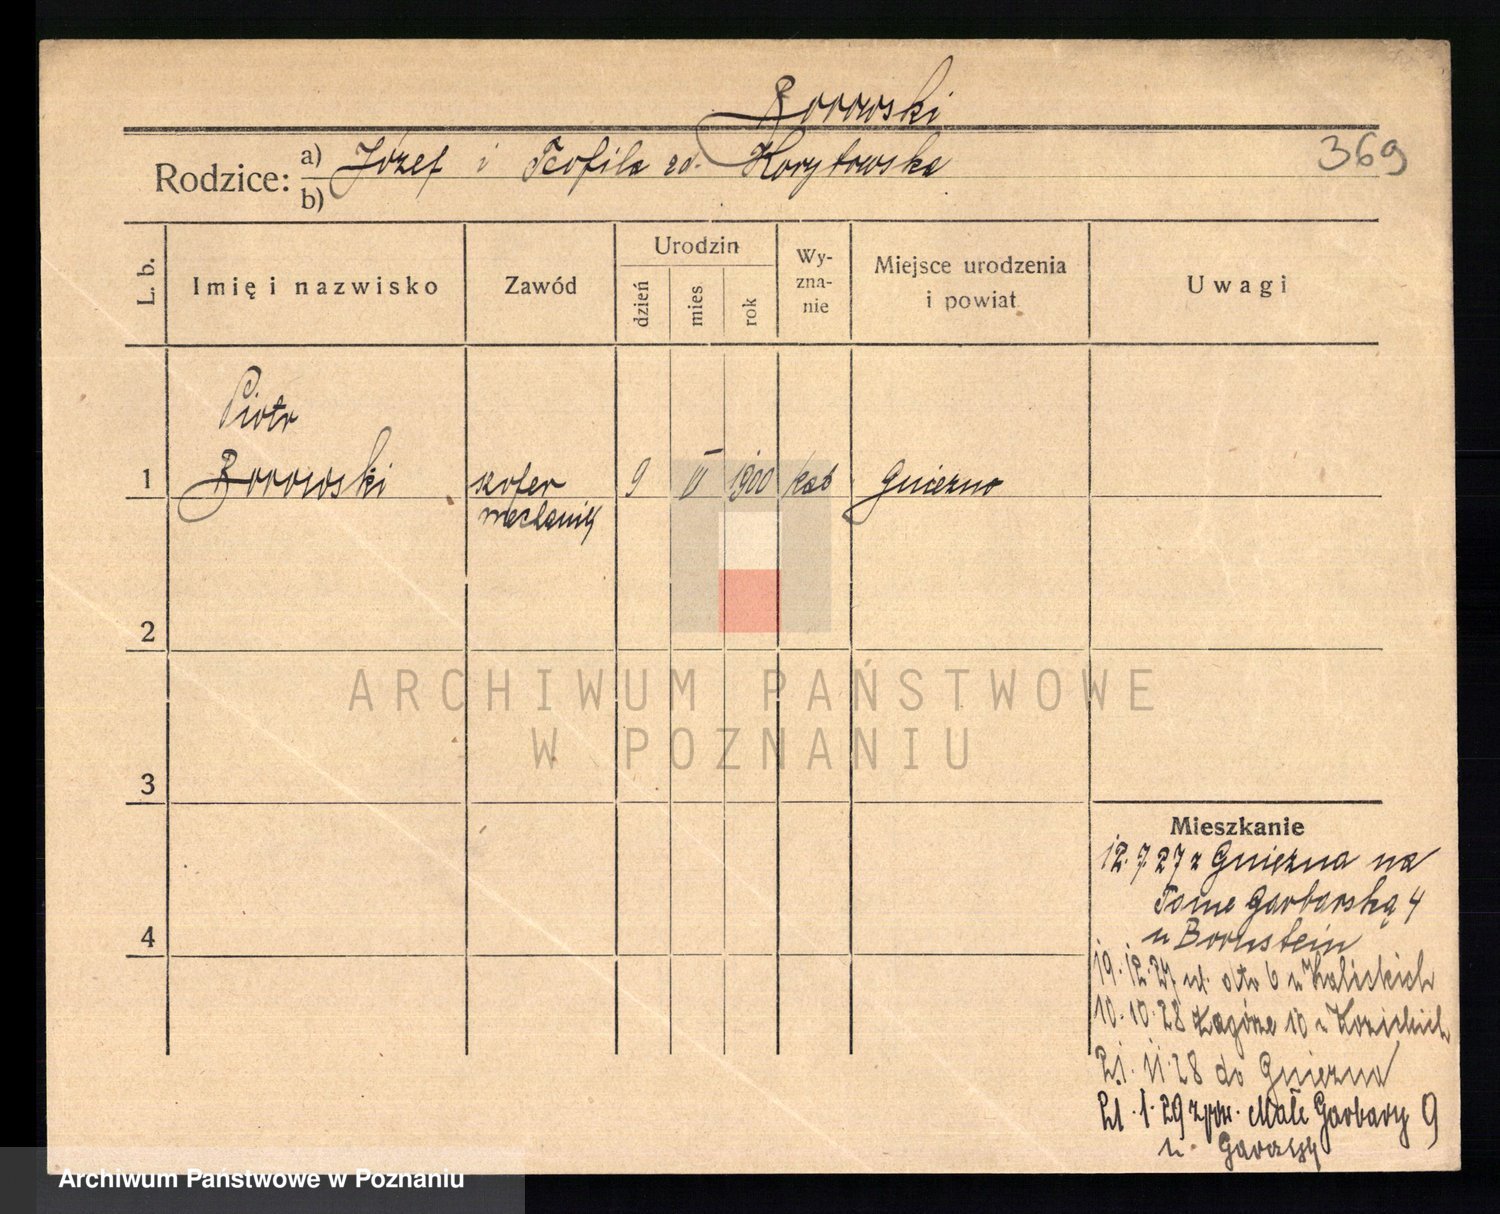 Borowski
369
Rodzice: a) Józef i Teofila zd. Korytowska
b)
L. b.
Imię i nazwisko
Zawód
Urodzin
dzień
mies
rok
Wy-
zna-
nie
Miejsce urodzenia
i powiat
Uwagi
Piotr
1 Borowski szofer 9 VI 1900 kat Gniezno
mechanik
2
3
4
ARCHIWUM PAŃSTWOWE
W POZNANIU
Mieszkanie
12.7.27 z Gniezna na
Tame Garbarską 4
u Bornstein
19.12.27 6 u Kaliskich
10.10.28 Zagórze 10 u
21.11.28 do Gniezna
21.1.29 Małe Garbary 9
u
Archiwum Państwowe w Poznaniu